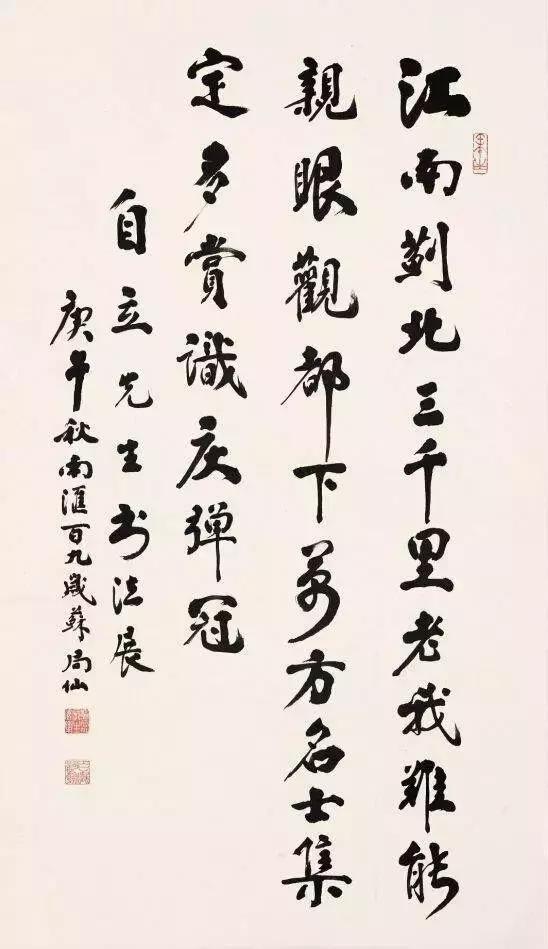 江南薊北三千里老我難能
親眼觀都下萬方名士集
定多賞識慶彈冠
自立先生书法展
庚午秋南匯百九歲蘇局仙